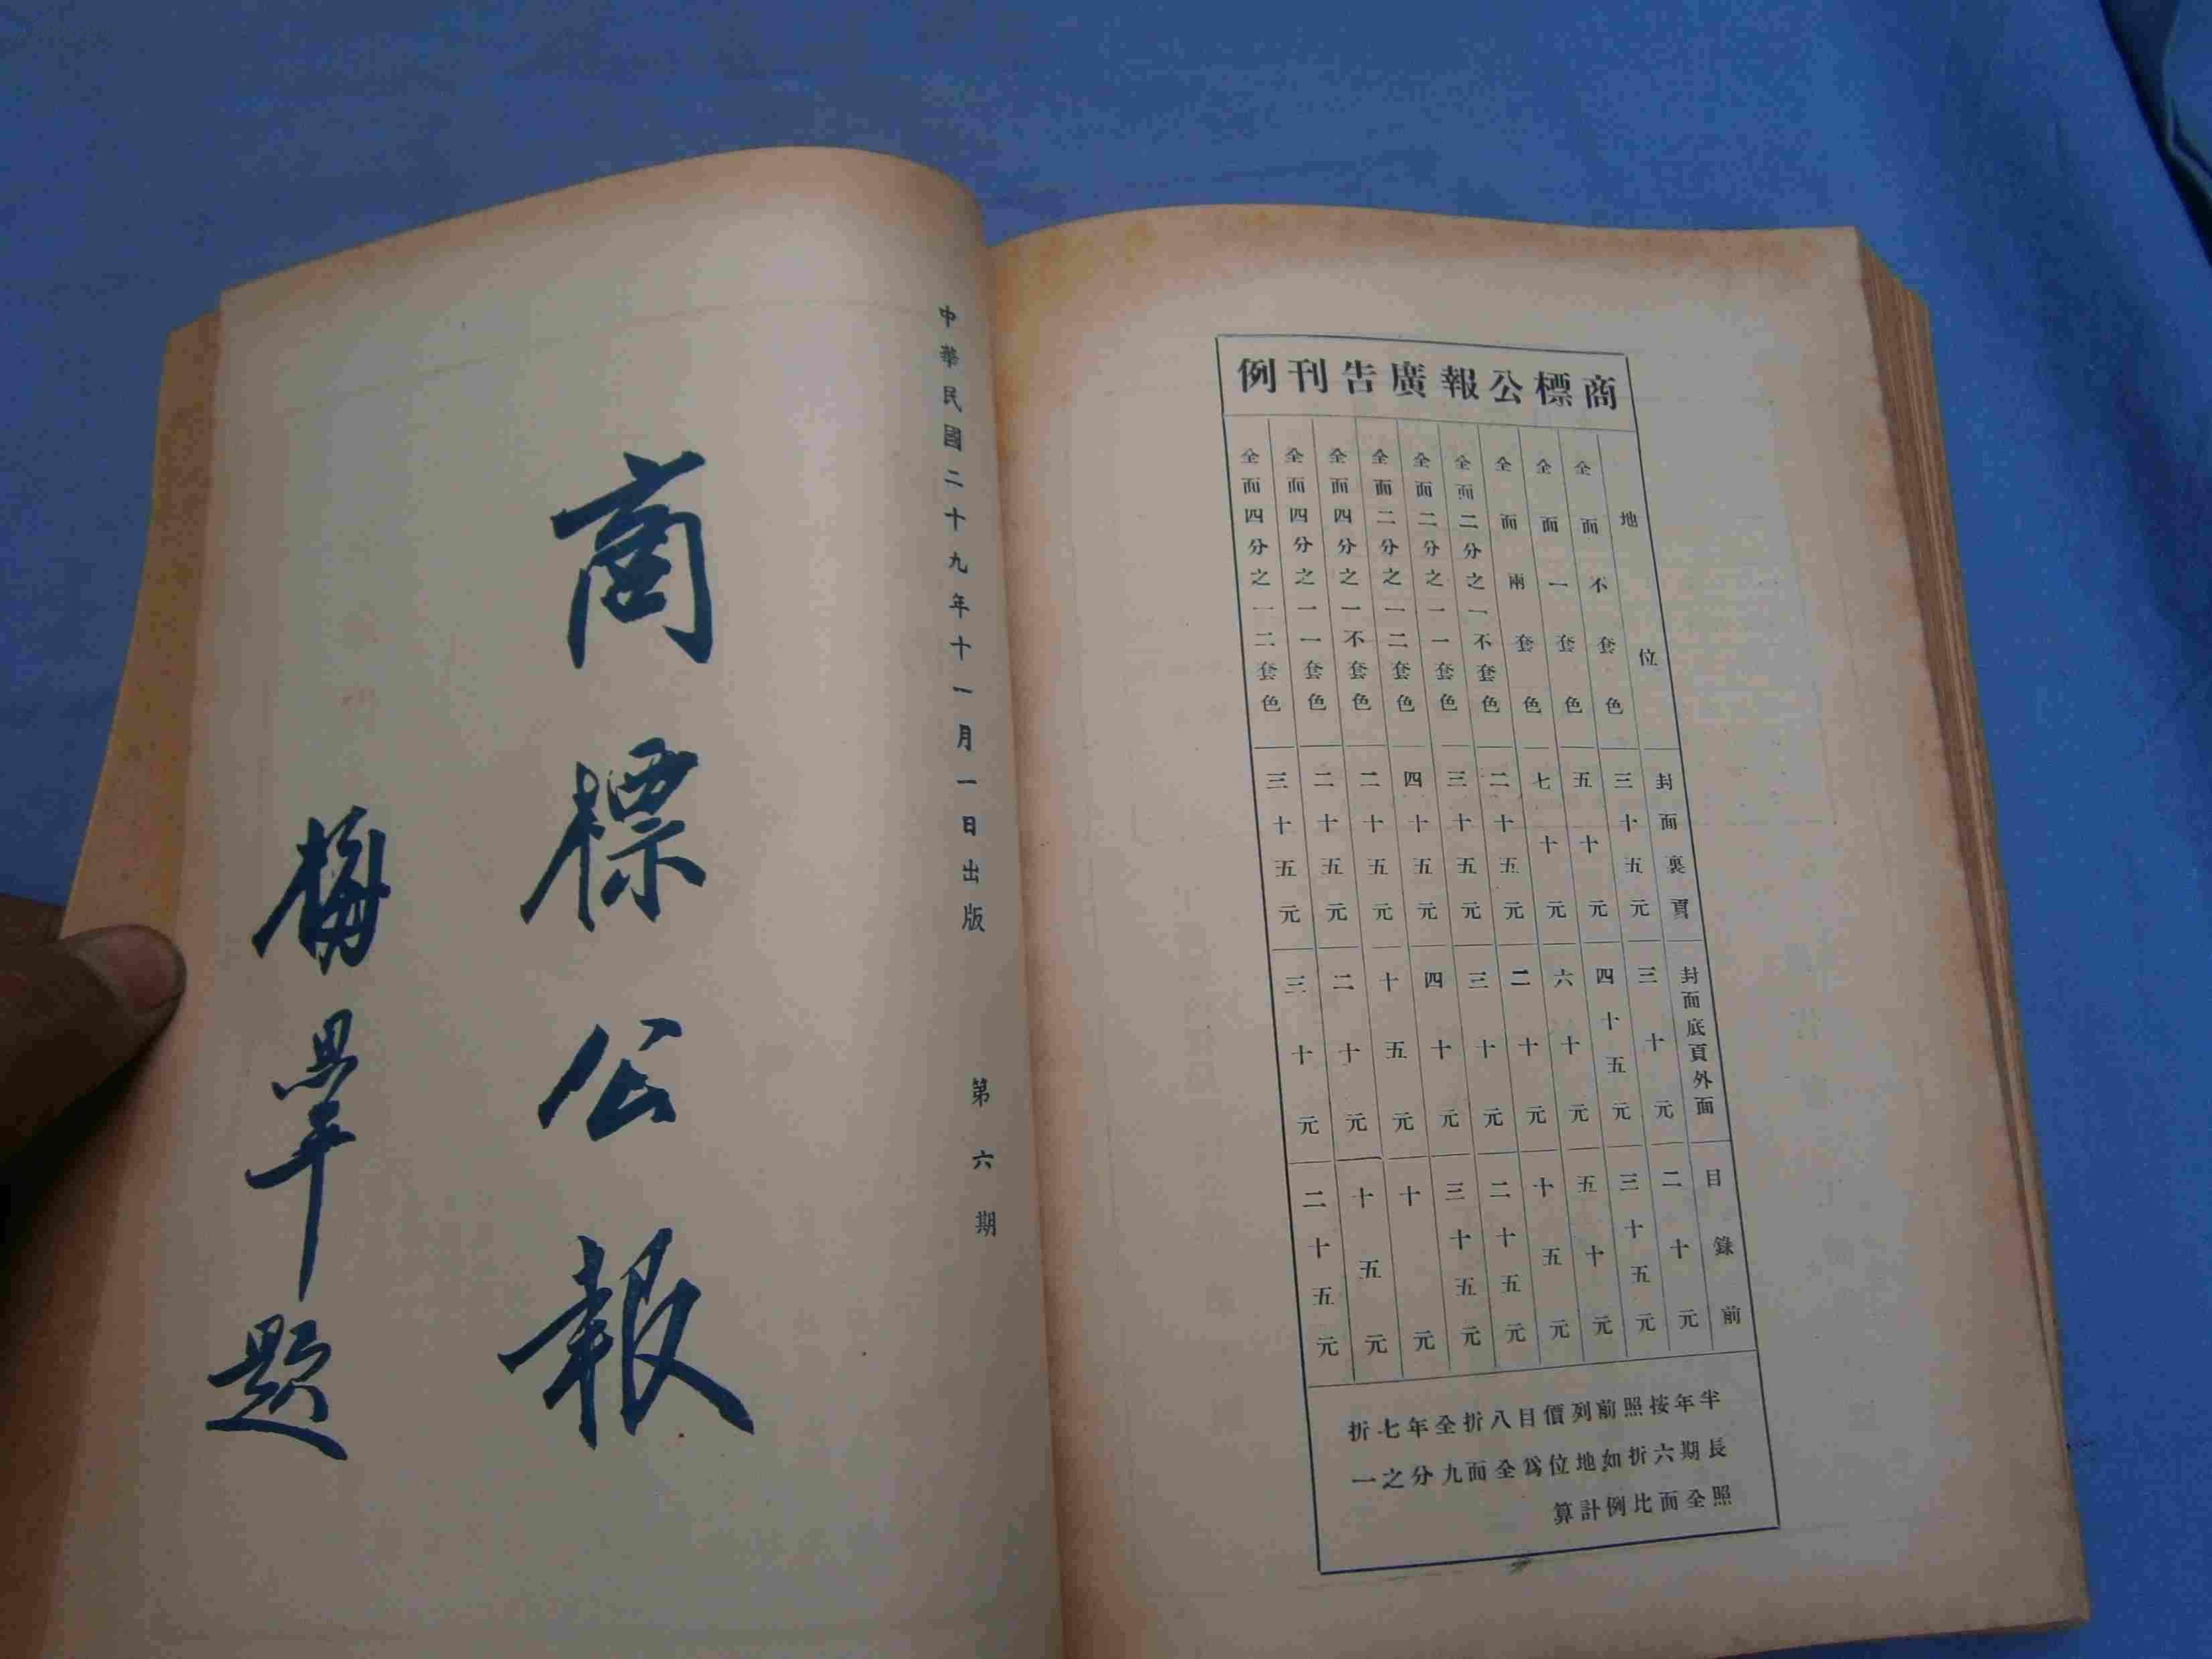 商標公報廣告刊例
地位 封面裏頁 封面底頁外面 目錄前
全面不套色 三十五元 三十元 二十元
全面一套色 五十元 四十五元 三十五元
全面兩套色 七十元 六十元 五十元
全面二分之一不套色 二十五元 二十元 十五元
全面二分之一一套色 三十五元 三十元 二十五元
全面二分之一二套色 四十五元 四十元 三十五元
全面四分之一不套色 二十五元 十五元 十元
全面四分之一一套色 二十五元 二十元 十五元
全面四分之一二套色 三十五元 三十元 二十五元
半年按照前列價目八折全年七折
長期六折如地位爲全面九分之一
照全面比例計算
中華民國二十九年十一月一日出版 第六期
商標公報
梅思平題